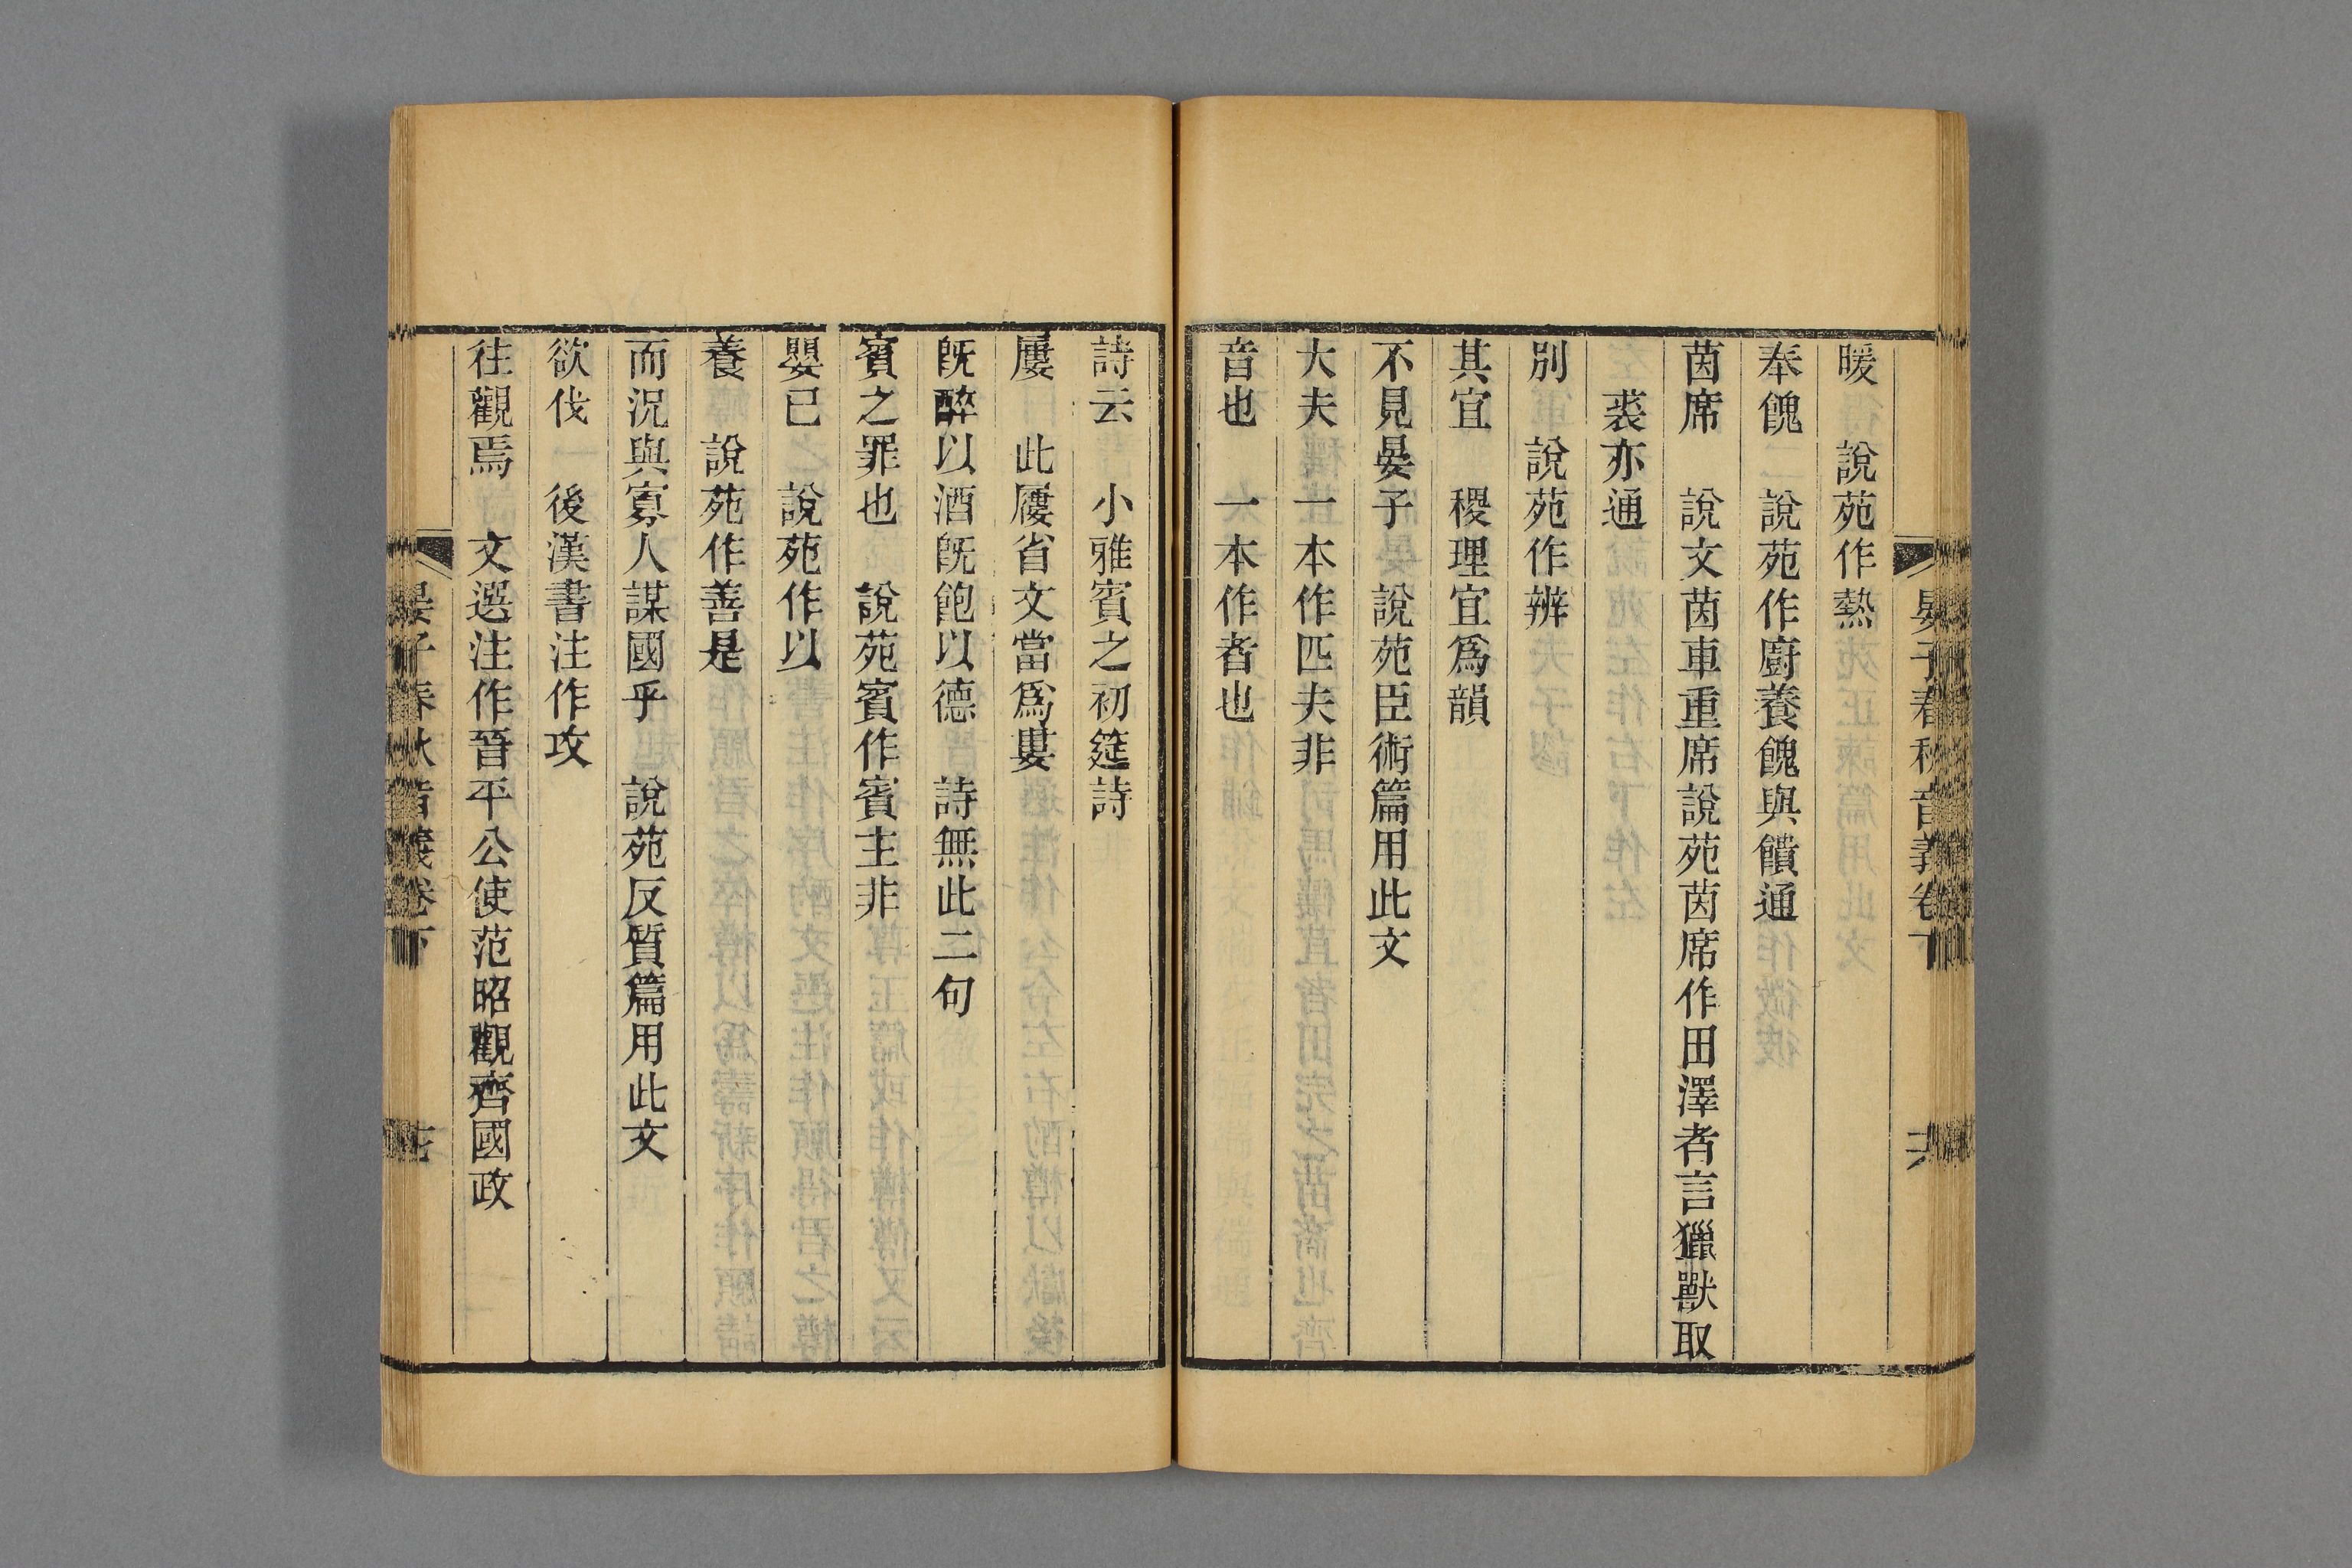 暖　說苑作熱
奉餽　說苑作廚養餽與饋通
茵席　說文茵車重席說苑茵席作田澤者言獵獸取
裘亦通
別　說苑作辨
其宜　稷理宜爲韻
不見晏子　說苑臣術篇用此文
大夫　一本作匹夫非
音也　一本作者也
詩云　小雅賓之初筵詩
屢　此屨省文當爲婁
旣醉以酒旣飽以德　詩無此二句
賓之罪也　說苑賓作賓主非
嬰已　說苑作以
養　說苑作善是
而況與寡人謀國乎　說苑反質篇用此文
欲伐　後漢書注作攻
往觀焉　文選注作晉平公使范昭觀齊國政
晏子春秋音義卷下